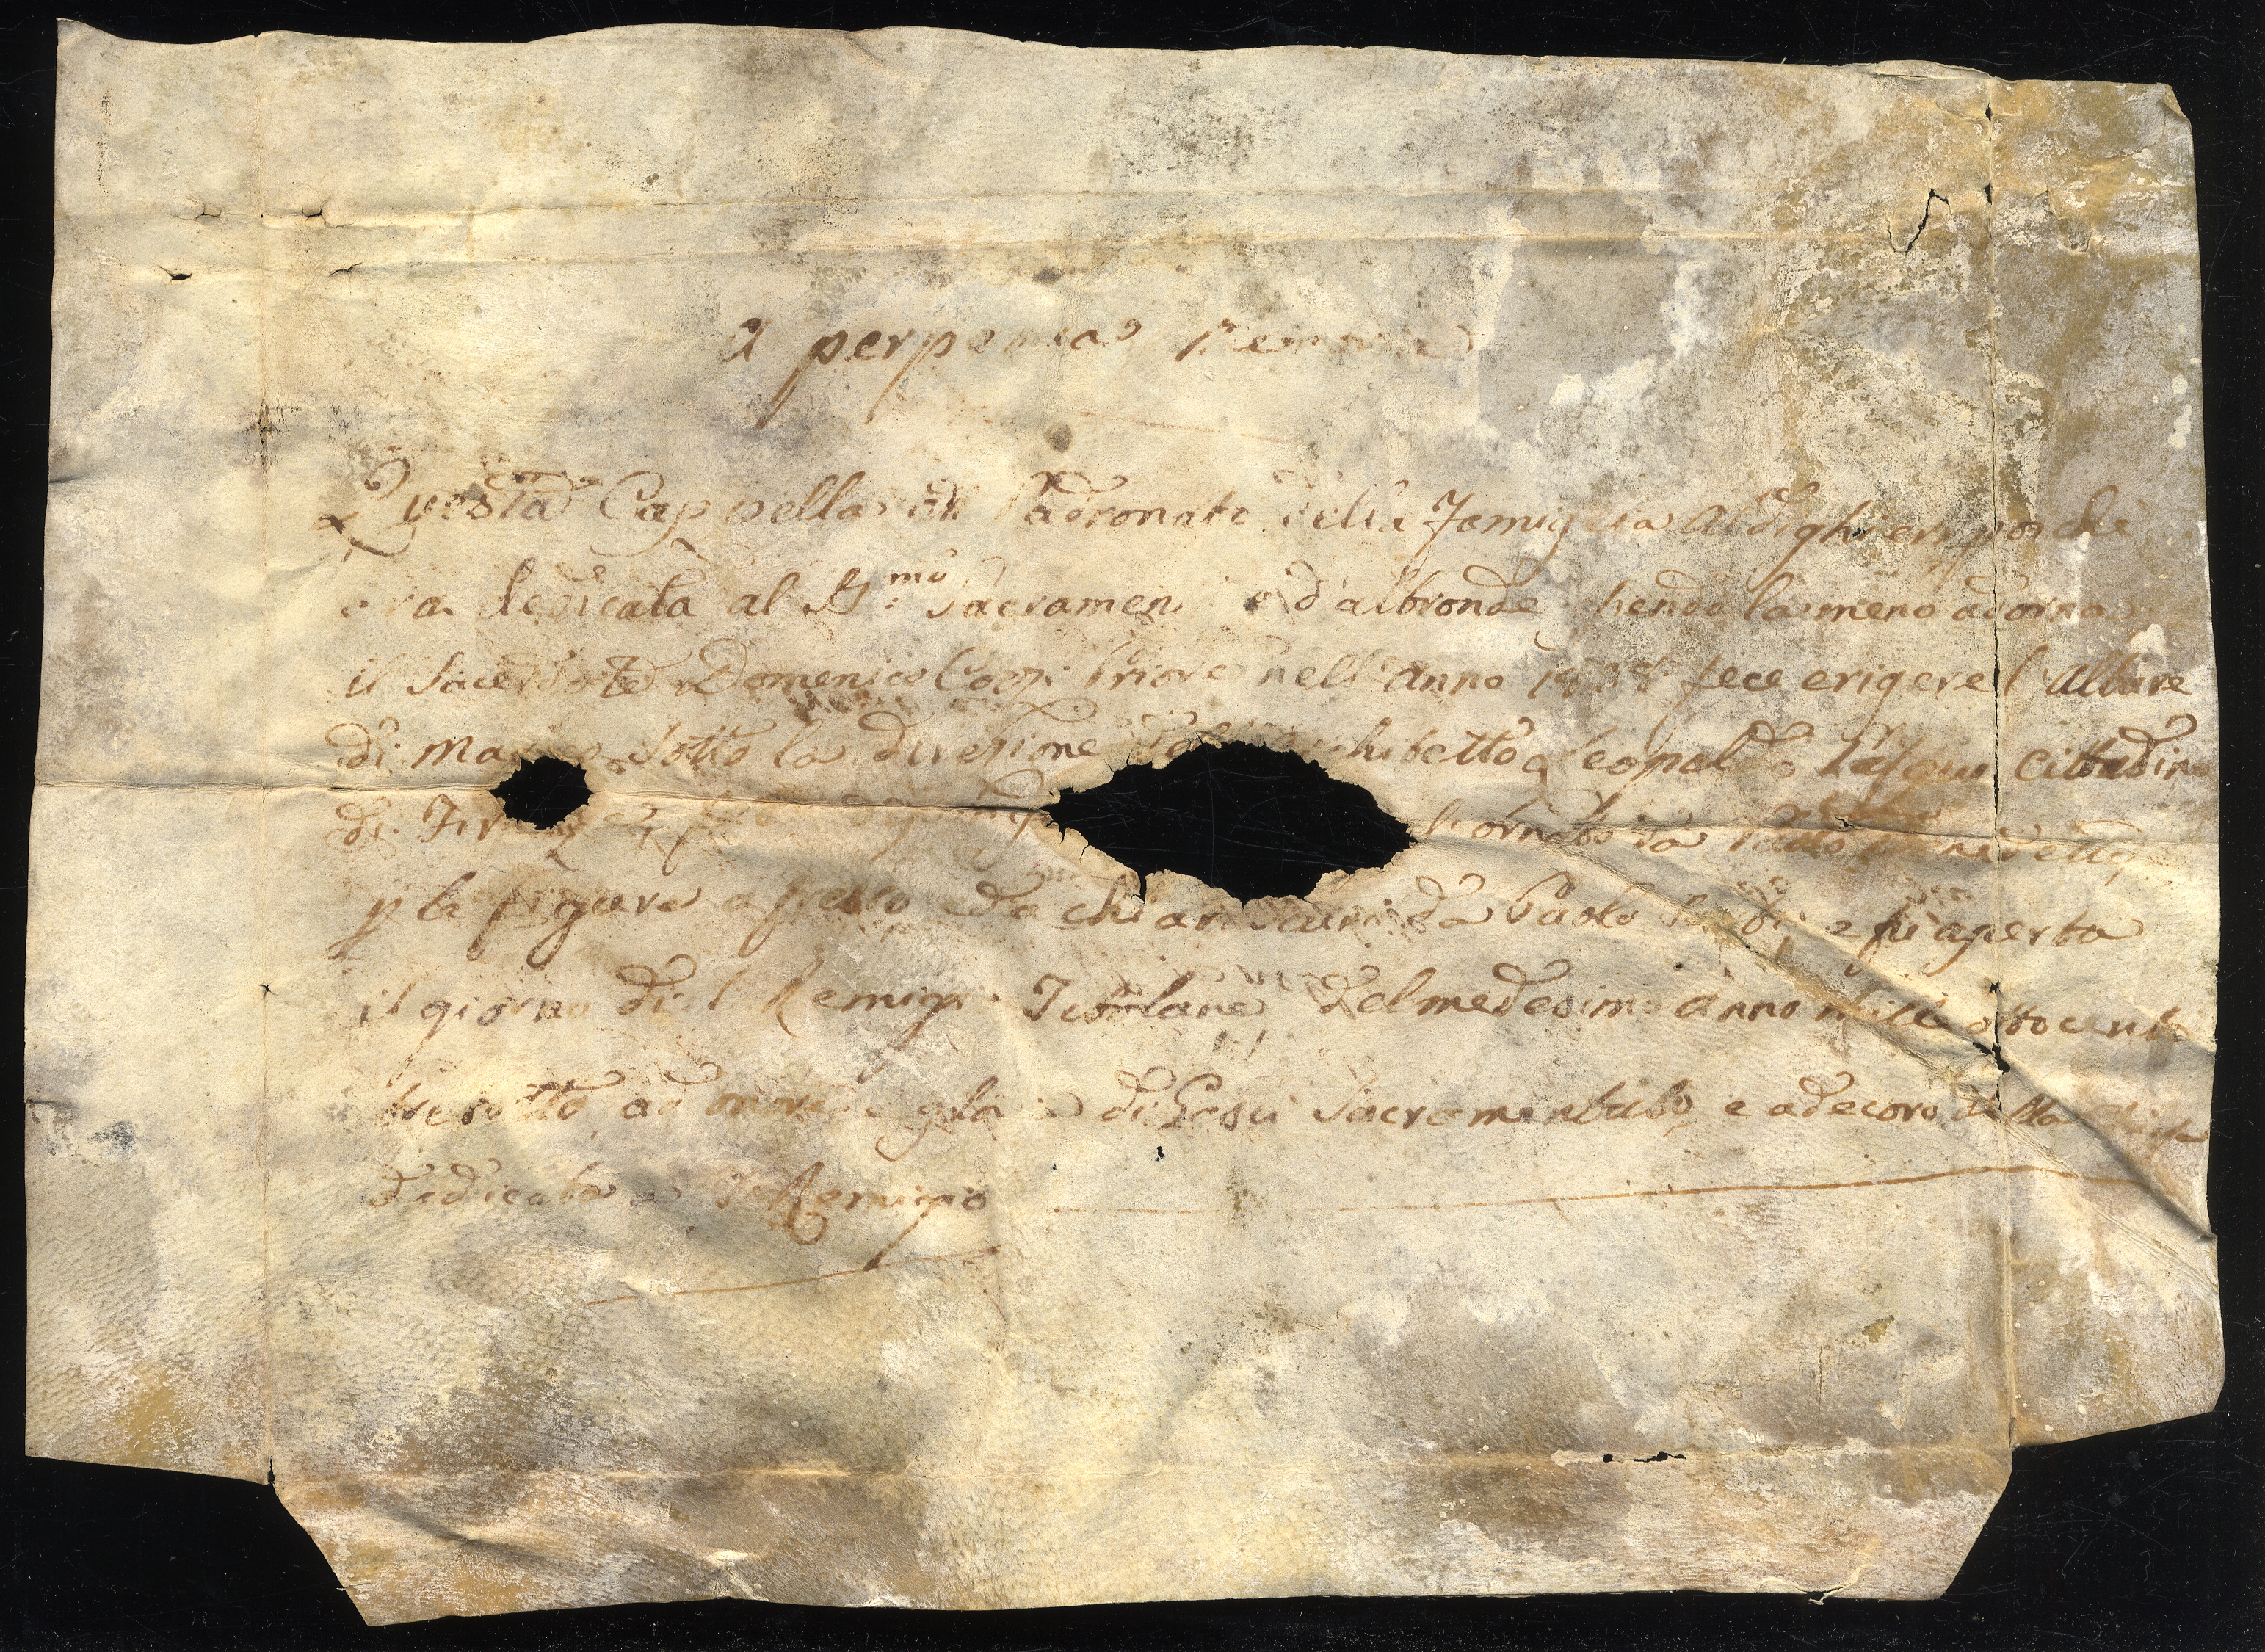 A perpetua memoria
Questa Cappella di Padronato della Famiglia Aldighieri poiche
era dedicata al SS.mo Sacramento ed altronde essendo la meno adorna
il Sacerdote Domenico Priore nell anno 1808 fece erigere l Altare
di Marmo sotto la direzione dell Architetto Leopoldo Pasqui Cittadino
di Firenze ornato da
p le figure a fresco e da chiari scuri da Paolo e fu aperta
il giorno di S Remigio del medesimo anno mille ottocento
tre otto ad onore e gloria di Gesù Sacramentato, e a decoro della
dedicata a S Remigio